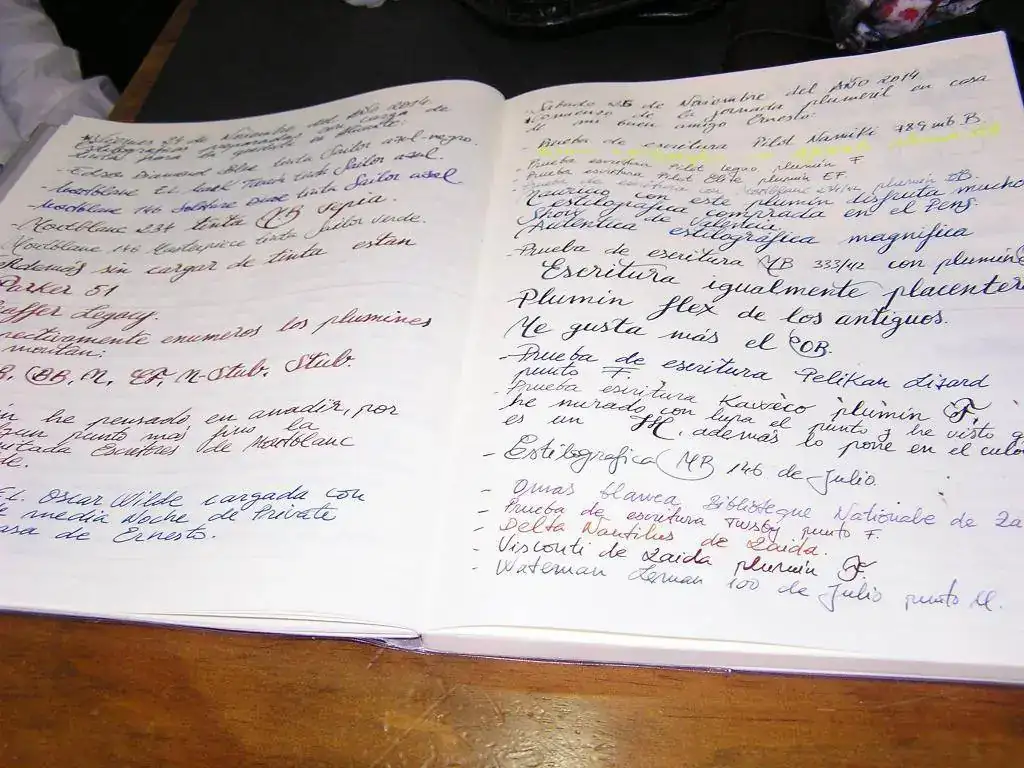 Viernes 21 de Noviembre del Año 2014.
Estilográficas preparadas con carga de
tinta para la
- Edson Diamond Blue tinta Sailor azul-negro.
- Montblanc tinta Sailor azul.
- Montblanc 146 Solitaire tinta Sailor azul
- Montblanc 234 tinta MB sepia.
- Montblanc 146 tinta Sailor verde.
Además sin cargar de tinta estan
Parker 51
Legacy.
enumeros los plumines
montan:
OB, M, EF, M-Stub, Stub.
he pensado en anadir, por
punto mas, pero la
Escritores de Montblanc
Oscar Wilde cargada con
media Noche de Private
casa de Ernesto.
- Sabado de Noviembre del Año 2014
Comienzo de la jornada plumeril en casa
de mi buen amigo Ernesto:
- Prueba de escritura Pilot Namiki 78g mb B.
- Prueba escritura Pilot negro, plumin F.
- Prueba escritura Pilot Elite plumin EF.
- Prueba de escritura con Montblanc plumin OB.
con este plumin disfruta mucho
estilografica comprada en el Pens
Show de Valencia.
Autentica estilográfica magnifica
- Prueba de escritura MB 333/42 con plumin
Escritura igualmente placentera
Plumin flex de los antiguos.
Me gusta más el OB.
- Prueba de escritura Pelikan Lizard
punto F.
- Prueba escritura Kaweco plumin F,
he mirado con lupa el punto y he visto
es un M, además lo pone en el culo
- Estilografica MB 146 de Julio.
- Omas blanca Biblioteque Nationale de
- Prueba de escritura Twsby punto F.
- Delta Nautilus de Zaida.
- Visconti de Zaida plumin F.
- Waterman Leman 100 de Julio punto M.